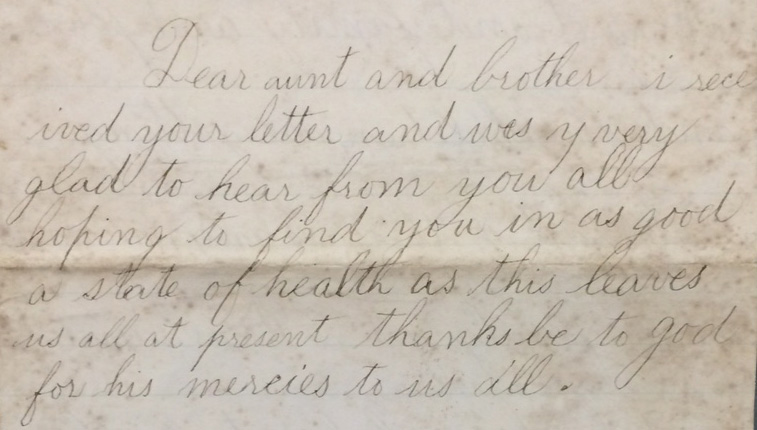 Dear aunt and brother i rece
ived your letter and wes y very
glad to hear from you all
hoping to find you in as good
a state of health as this leaves
us all at present thanks be to god
for his mercies to us all.